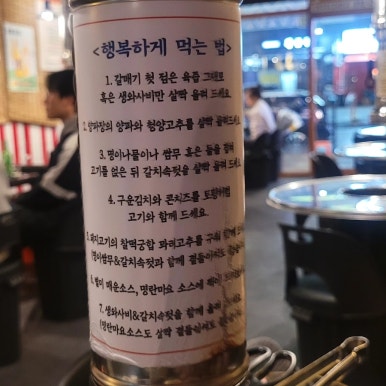 <행복하게 먹는 법>
1. 갈매기 첫 점은 육즙 그대로
혹은 생와사비만 살짝 올려 드세요
2. 양파장의 양파와 청양고추를 살짝 곁들여
3. 명이나물이나 쌈무 혹은 둘을 깔고
고기를 얹은 뒤 갈치속젓을 올려 드세요
4. 구운김치와 콘치즈를 토핑처럼
고기와 함께 드세요.
5. 돼지고기의 찰떡궁합 꽈리고추를 구워
명이쌈무&갈치속젓과 함께
6. 별미 매운소스, 명란마요 소스에
7. 생와사비&갈치속젓을 함께 올려
(명란마요소스도 살짝 곁들이셔도